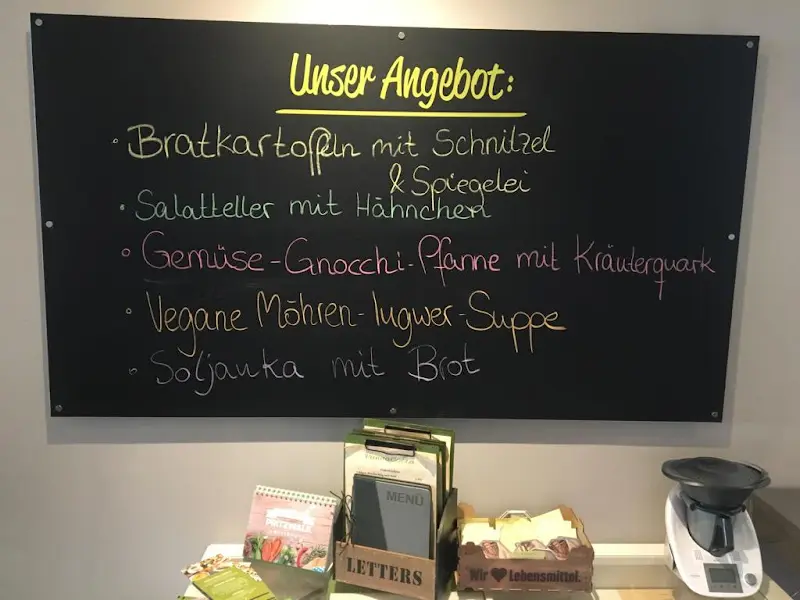 Unser Angebot:
• Bratkartoffeln mit Schnitzel
& Spiegelei
• Salatteller mit Hähnchen
• Gemüse-Gnocchi-Pfanne mit Kräuterquark
• Vegane Möhren-Ingwer-Suppe
• Soljanka mit Brot
MENÜ
LETTERS
Wir ❤ Lebensmittel.